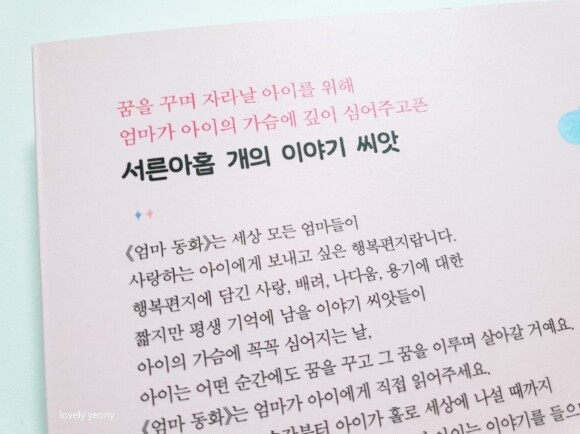 꿈을 꾸며 자라날 아이를 위해
엄마가 아이의 가슴에 깊이 심어주고픈
서른아홉 개의 이야기 씨앗
《엄마 동화》는 세상 모든 엄마들이
사랑하는 아이에게 보내고 싶은 행복편지랍니다.
행복편지에 담긴 사랑, 배려, 나다움, 용기에 대한
짧지만 평생 기억에 남을 이야기 씨앗들이
아이의 가슴에 꼭꼭 심어지는 날,
아이는 어떤 순간에도 꿈을 꾸고 그 꿈을 이루며 살아갈 거예요.
《엄마 동화》는 엄마가 아이에게 직접 읽어주세요.
아이가 홀로 세상에 나설 때까지
이야기를
lovely yeony